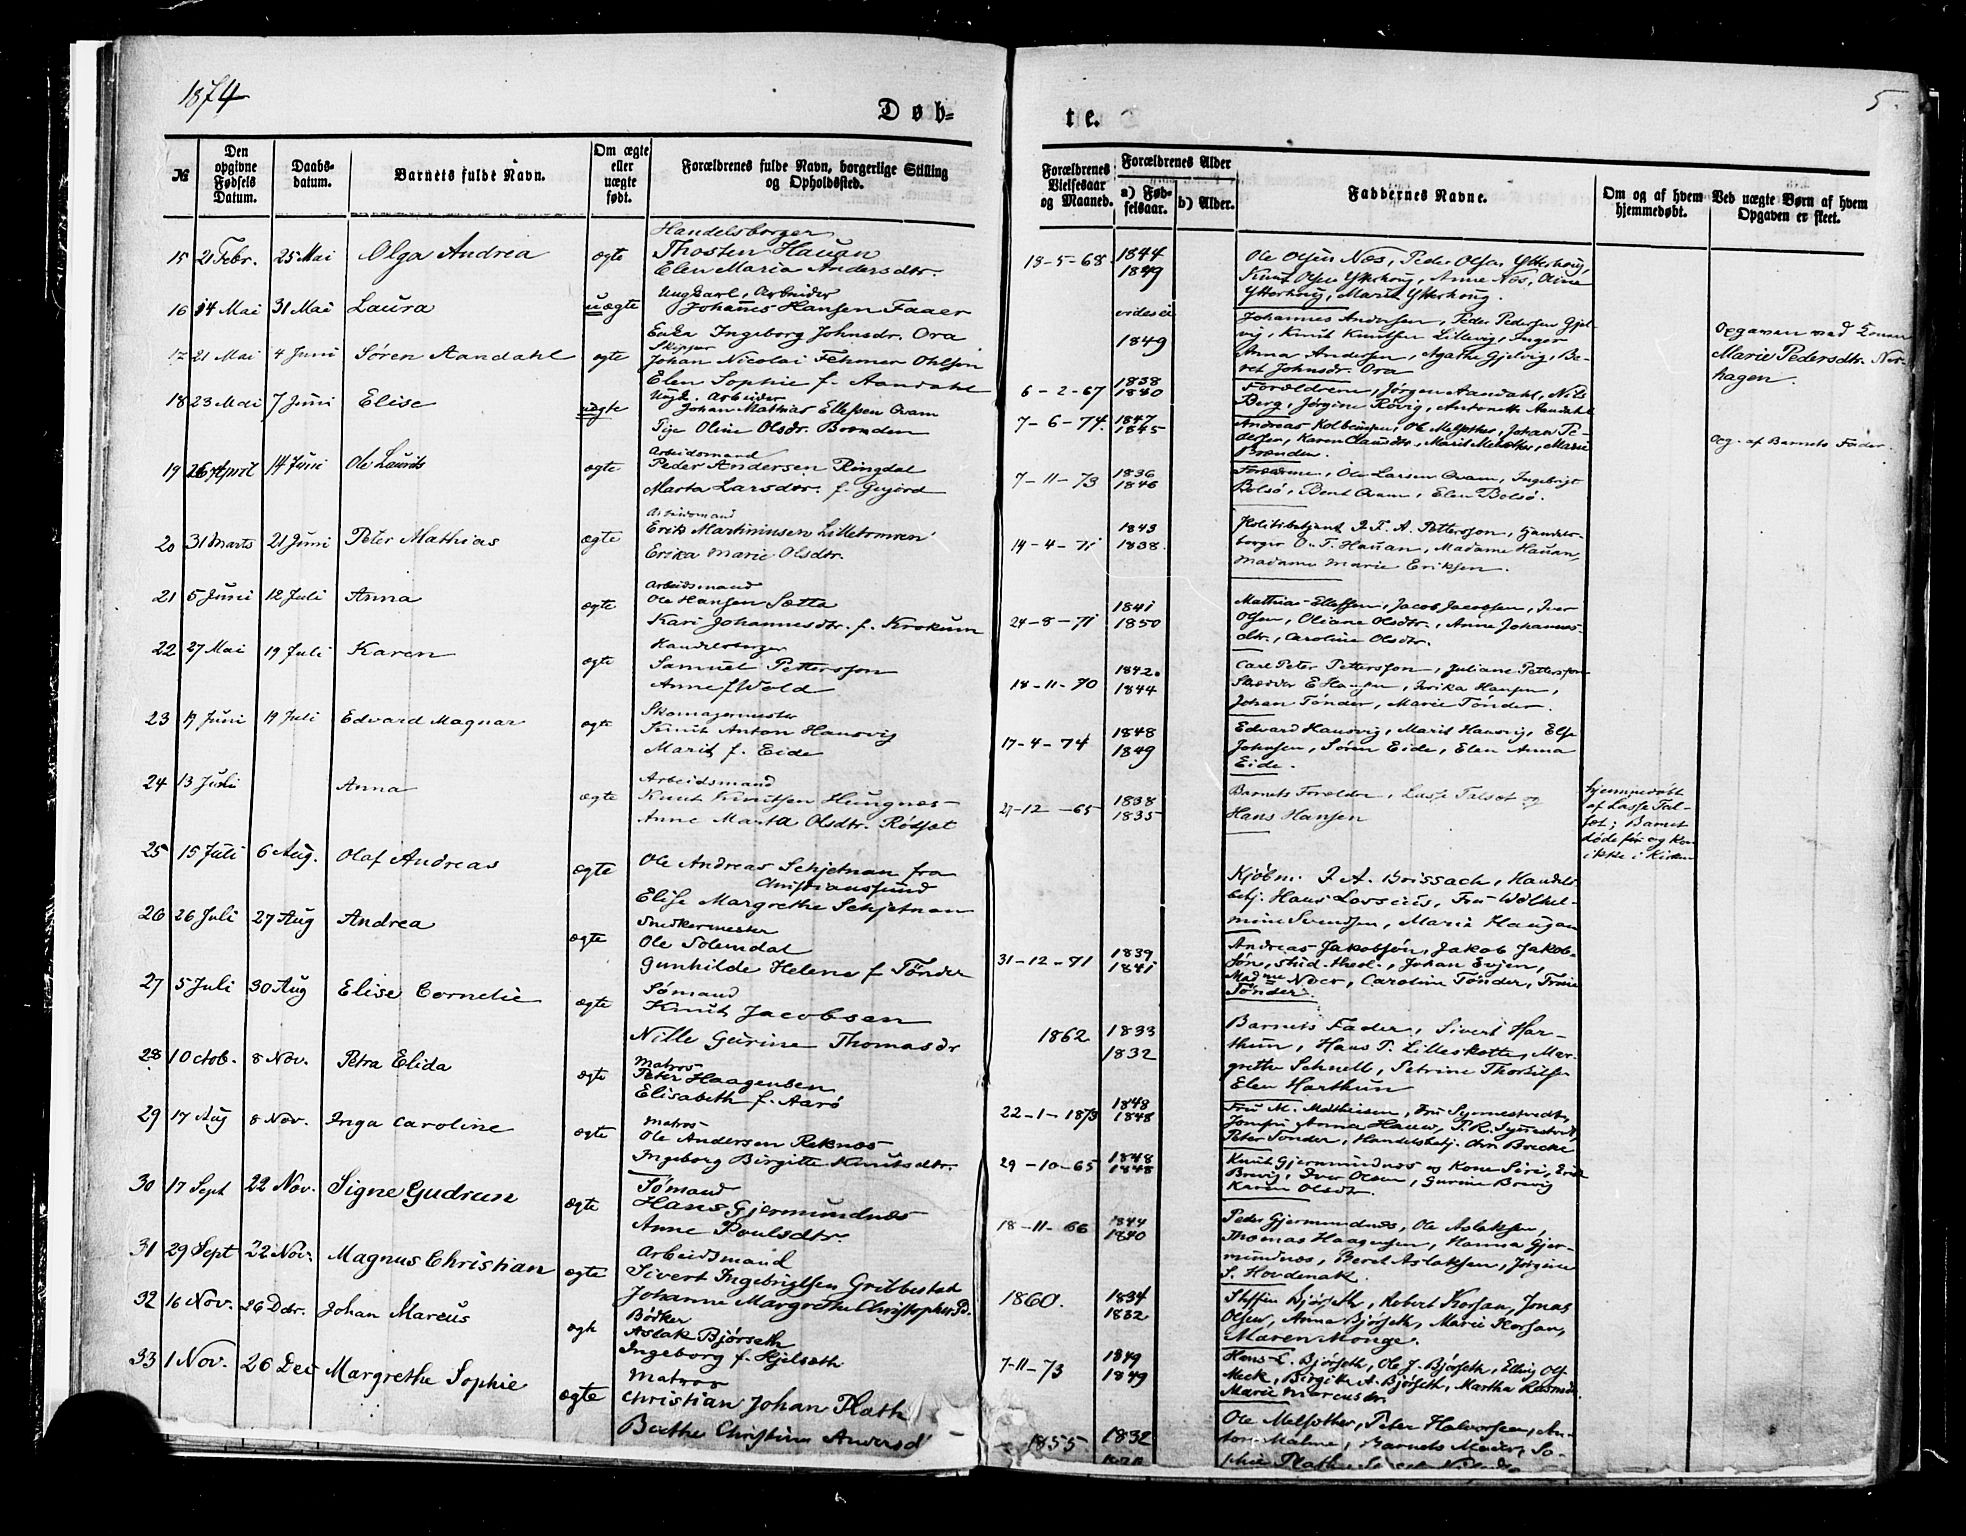 1874
5.
Døb-
te.
№
Den opgivne Fødsels Datum.
Daabs-datum.
Barnets fulde Navn.
Om ægte eller uægte født.
Forældrenes fulde Navn, borgerlige Stilling og Opholdssted.
Forældrenes Vielsesaar og Maaned.
Forældrenes Alder
a) Fødselsaar.
b) Alder.
Faddernes Navne.
Om og af hvem hjemmedøbt.
Ved uægte Børn af hvem Opgaven er skeet.
Handelsborger
15 21 Febr. 25 Mai Olga Andrea ægte Thosten Hauan
Elen Maria Andersdtr.
18-5-68 1844
1849
Ole Olsen Næs, Peder Olsen Ytterhoug,
Knut Olsen Ytterhoug, Anne Nøs, Oline
Ytterhoug, Marit Ytterhoug.
Ungkarl, Arbeider
16 14 Mai 31 Mai Laura uægte Johanes Hansen Faaer
Enka Ingeborg Johnsdr. Ora
1849
Johannes Andersen, Peder Pedersen Gjel-
vig, Knut Knutsen Lillevig, Inger
Anna Andersen, Agathe Gjelvig, Be-
ret Johnsdr. Ora
Opgaven ved
Marie Pedersdtr. Ner-
hagen.
Skipper
17 21 Mai 4 Juni Søren Aandahl ægte Johan Nicolai Fehmer Ohlsen
Elen Sophie f. Aandahl
6-2-67 1838
1840
Forældrene, Jørgen Aandahl, Nils
Berg, Jørgine Rövig, Antonette Aandahl
Ungk. Arbeider
18 23 Mai 7 Juni Elise uægte Johan Mathias Ellefsen Qvam
Pige Oline Olsdr. Brænden
7-6-74. 1847
1845
Andreas Kolbeinsen, Ole Melsæther, Johan Pe-
dersen, Karen Clausdtr., Marit Melsæther, Marie
Brænden.
Opg. af Barnets Fader.
Arbeidsmand
19 26 April 14 Juni Ole Laurits ægte Peder Andersen Ringdal
Marta Larsdtr. f. Gujord
7-11-73 1836
1846
Forældrene, Ole Larsen Qvam, Ingebrigt
Bolsø, Bent Qvam, Elen Bolsø.
Arbeidsmand
20 31 Marts 21 Juni Peter Mathias ægte Erik Martiniusen Lilletrøen
Erika Marie Olsdtr.
14-4-71 1843
1838.
Politibetjent P. T. A. Pettersson, Handels-
borger O. T. Hauan, Madame Hauan,
Madame Marie Eriksen.
Arbeidsmand
21 5 Juni 12 Juli Anna ægte Ole Hansen Sætta
Kari Johannesdtr. f. Krokum
24-8-71 1841
1850
Mathias Ellefsen, Jacob Jacobsen, Iver
Olsen, Oliane Olsdtr., Anne Johannes-
dtr., Caroline Olsdtr.
Handelsborger
22 27 Mai 19 Juli Karen ægte Samuel Pettersson
Anne f Wold
18-11-70 1842.
1844
Carl Peter Pettersson, Juliane Pettersson
Skrædder E Hansen, Erika Hansen,
Johan Tønder, Marie Tønder.
Skomagermester
23 9 Juni 19 Juli Edvard Magnar ægte Knut Anton Hansvig
Marit f. Eide
17-4-74 1848
1849
Edvard Hansvig, Marit Hansvig, Else
Johnsen, Søren Eide, Elen Anna
Eide.
Arbeidsmand
24 13 Juli Anna ægte Knut Knutsen Haugnes
Anne Marta Olsdtr. Rødset
27-12-65 1838
1835
Barnets Forældre, Lasse Talset og
Hans Hansen
Hjemmedøbt
af Lasse Tal-
set; Barnet
døde før og kom
ikke i Kirken
25 15 Juli 6 Aug. Olaf Andreas ægte Ole Andreas Schjetnan fra
Christianssund
Elise Margrethe Schjetnan
Kjøbm. P. A. Brissach, Handels-
betj. Hans Lossius, Fru Wilhel-
mine Svendsen, Maria Haugan
Snedkermester
26 26 Juli 27 Aug Andrea ægte Ole Solemdal
Gunhilde Helene f Tønder
31-12-71 1839
1841
Andreas Jakobsøn, Jakob Jakob-
søn, stud. theol., Johan Evjen,
Madme Noer, Caroline Tønder, Trine
Tønder.
Sømand
27 5 Juli 30 Aug Elise Cornelie ægte Knut Jacobsen
Nille Gurine Thomasdr
1862 1833
1832
Barnets Fader, Sivert Har-
thun, Hans P. Lilleskotte, Mar-
grethe Schnell, Petrine Thorkilsen
Elen Harthun
Matros
28 1 Octob. 8 Nov. Petra Elida ægte Peter Haagensen
Elisabeth f. Aarø
22-1-1873 1848
1848
Fru M. Mathiesen, Fru Symmestvedt,
Jomfru Anna Hauw, P. R. Symmestvedt,
Peter Tønder, Handelsbetj. Chr. Brecke
Matros
29 17 Aug 8 Nov. Inga Caroline ægte Ole Andersen Reknæs
Ingeborg Birgitte Knutsdtr.
29-10-65 1848
1848
Knut Gjermundnæs og Kone Siri, Erik
Brevig, Iver Olsen, Gurine Brevig
Karen Olsdtr.
Sømand
30 17 Sept 22 Nov. Signe Gudrun ægte Hans Gjermundnæs
Anne Poulsdtr.
18-11-66 1844
1840
Peder Gjermundnæs, Ole Aslaksen,
Thomas Haagensen, Hanna Gjer-
mundnæs, Beret Aslaksen, Jørgine
S. Hovdenak.
Arbeidsmand
31 29 Sept 22 Nov. Magnus Christian ægte Sivert Ingebrigtsen Gribbested
Johanne Margrethe Christophersd.
1860. 1834
1832
Steffen Bjørseth, Robert Korsan, Jonas
Olsen, Anna Bjørseth, Marie Korsan,
Maren Monge.
Bødker
32 16 Nov. 26 Der. Johan Marcus ægte Aslak Bjørseth
Ingeborg f. Hjelseth
7-11-73 1849
1849
Hans L. Bjørseth, Ole J. Bjørseth, Elling Ols
Meek, Birgitte A. Bjørseth, Martha Rasmusd.
Marie Marcusdr
Matros
33 1 Nov. 26 Dec Margrethe Sophie ægte Christian Johan Plath
Berthe Christine Andersd
1855 1832
Ole Melsæther, Peter Halvorsen, An-
ton Malme, Barnets Moder, So-
phie Plath